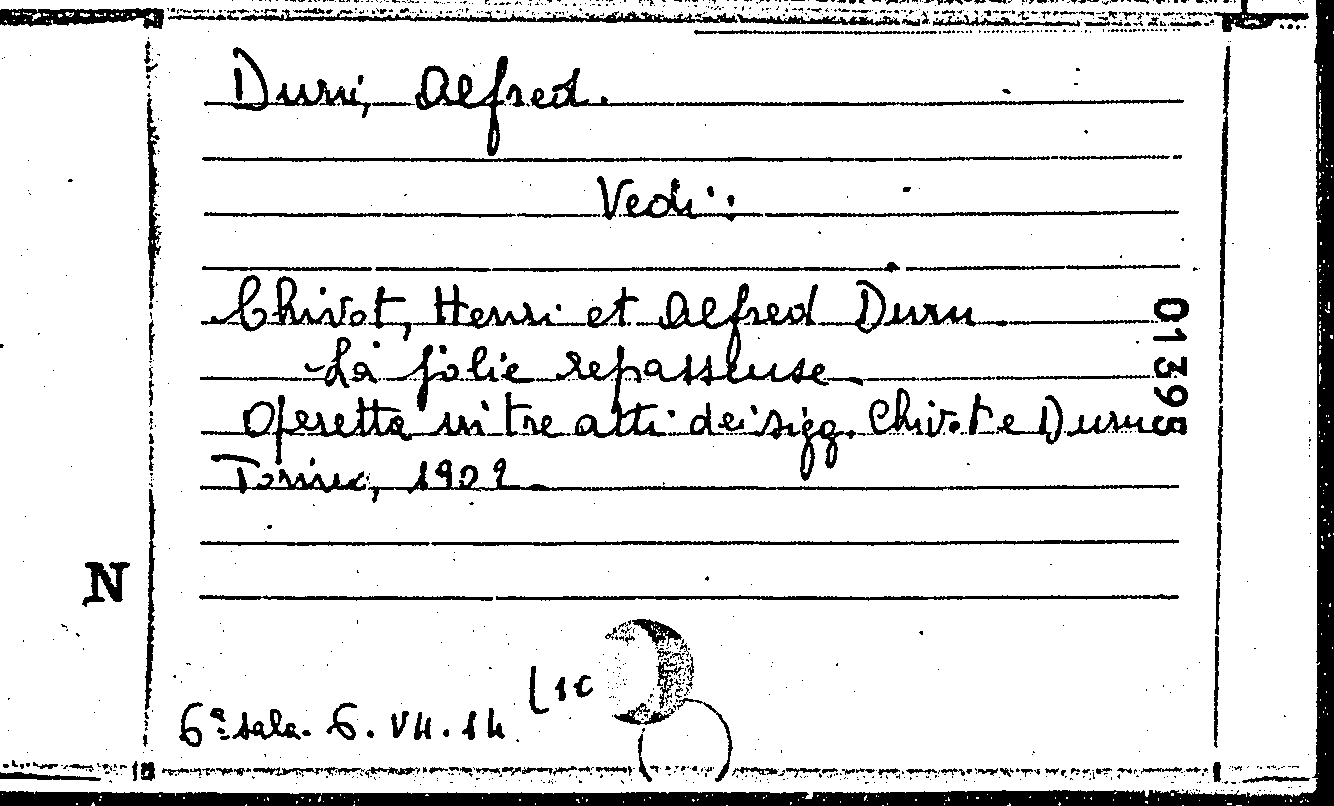 Duru, Alfred.
Vedi:
Chivot, Henri et Alfred Duru
La jolie repasseuse
Operetta in tre atti dei sigg. Chivot e Duru
Torino, 1902
01395
N
L 1c
6ª sala. 6. VII. 14